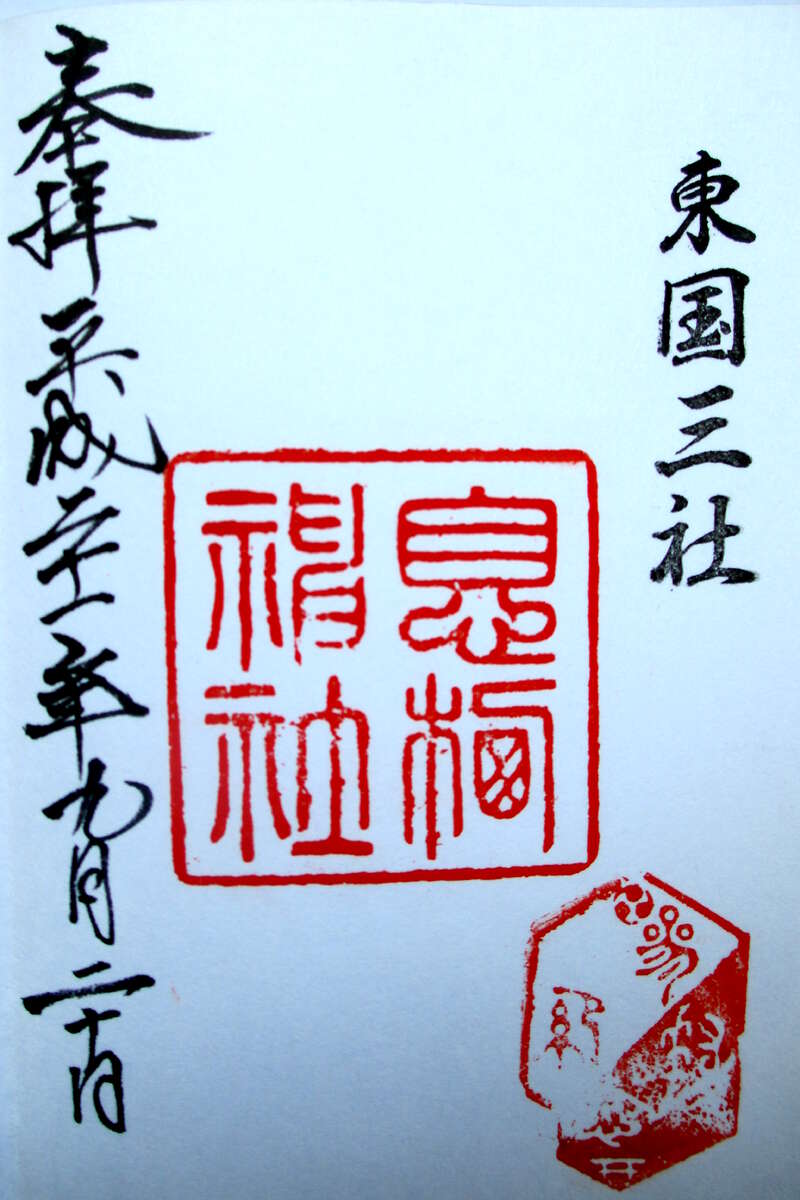 東国三社
息栖
神社
奉拝 平成二十一年九月二十日